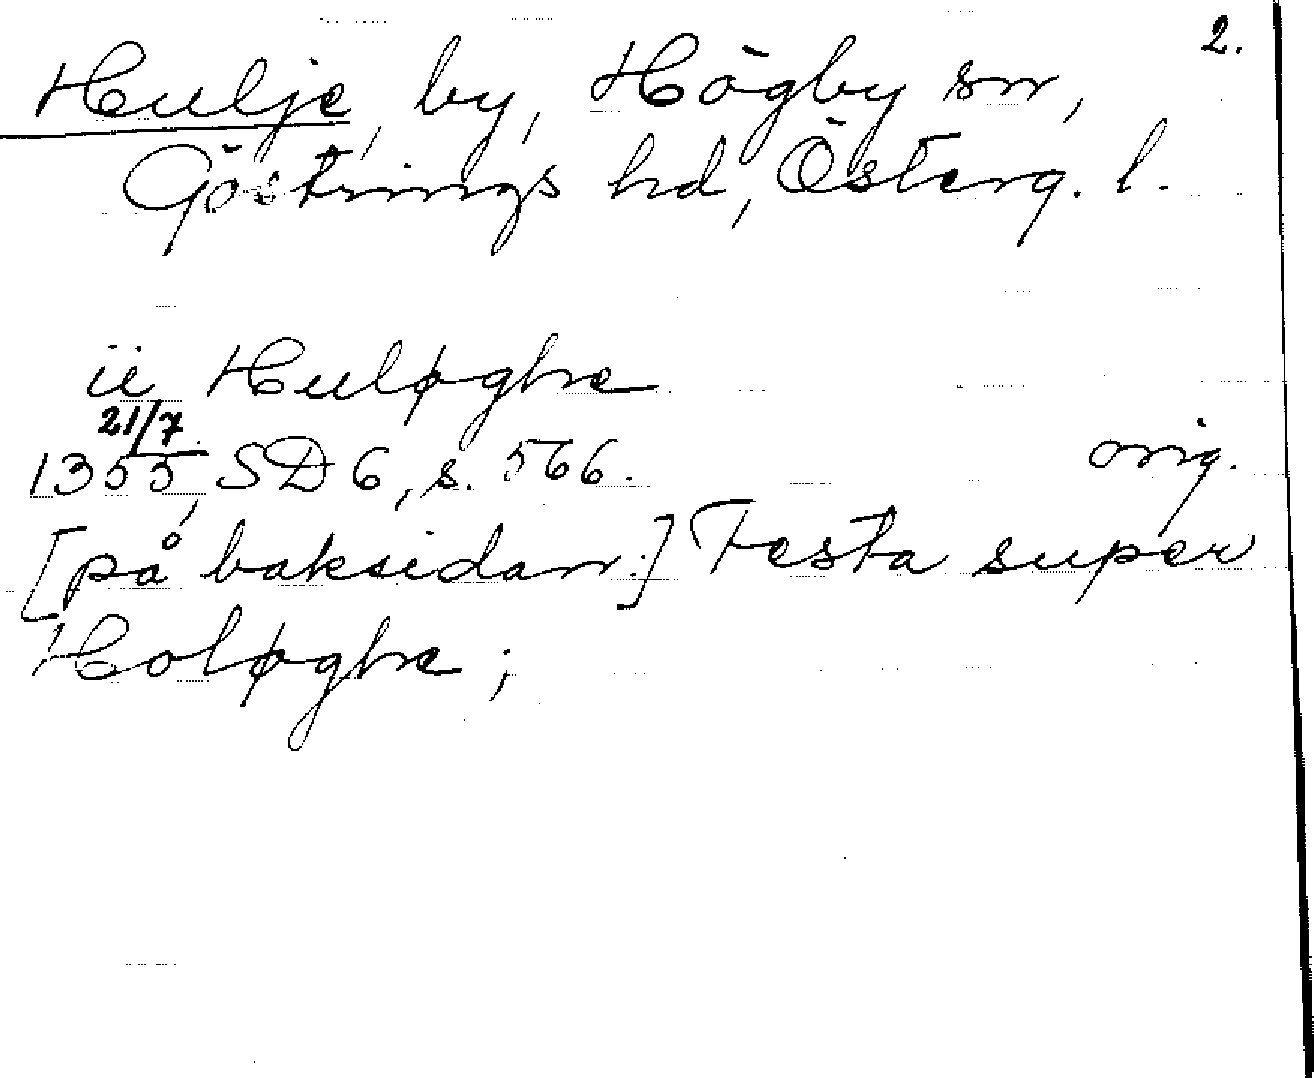 2.
Hulje, by, Högby sn,
Göstrings hd, Österg. l.
ii Huløghe
21/7
1355, SD 6, s. 566. orig.
[på baksidan:] Festa super
Holøghe;